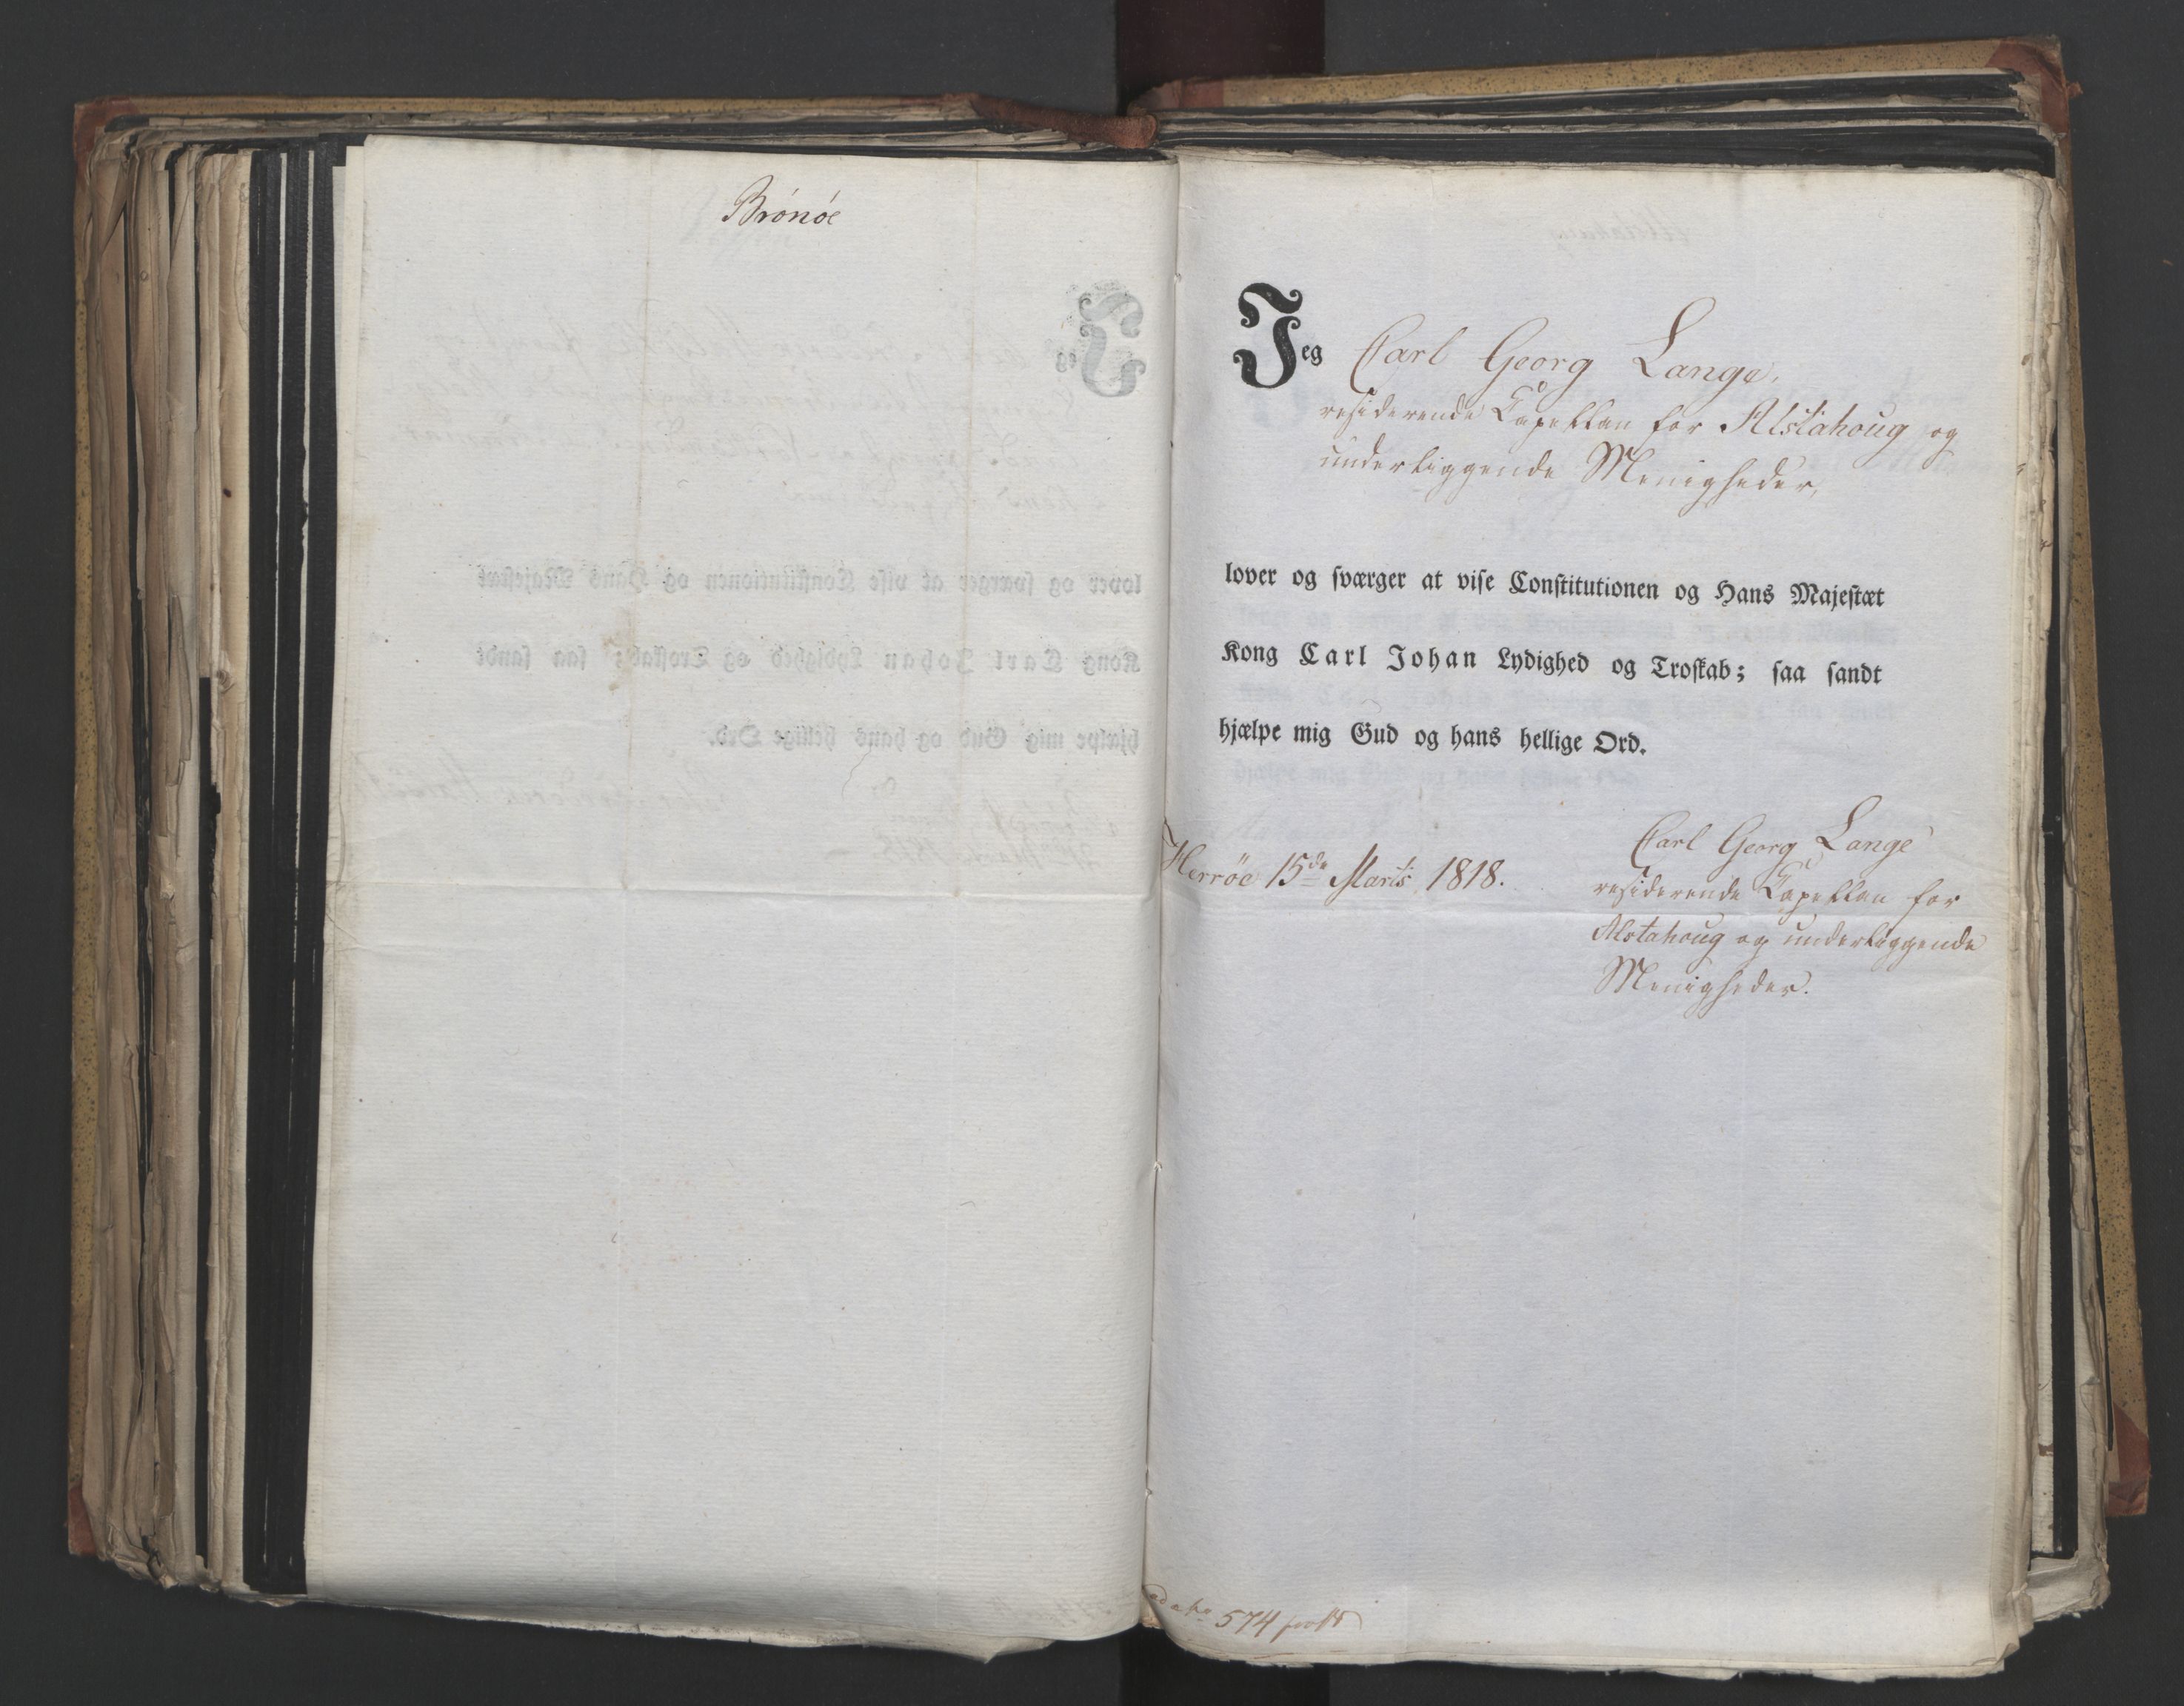 Brónóe
Jeg Carl Georg Lange,
residerende Capellan for Alstahoug og
underliggende Menigheder,
lover og sværger at vise Constitutionen og Hans Majestæt
Kong Carl Johan Lydighed og Troskab; saa sandt
hjælpe mig Gud og hans hellige Ord.
Herrøe 15de Marts 1818.
Carl Georg Lange
residerende Capellan for
Alstahoug og underliggende
Menigheder.
ad No 574